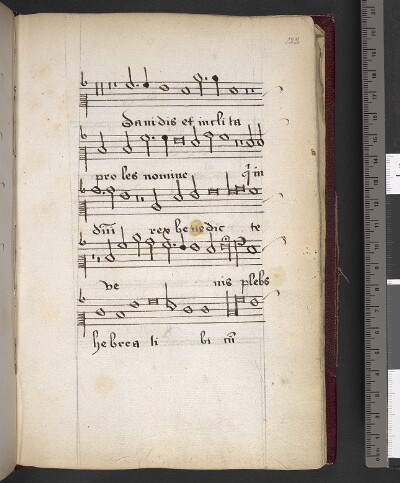 Davidis et inclita
proles nomine q̄ in
dn̄i rex benedic te
ve nis plebs
hebrea ti bi cū